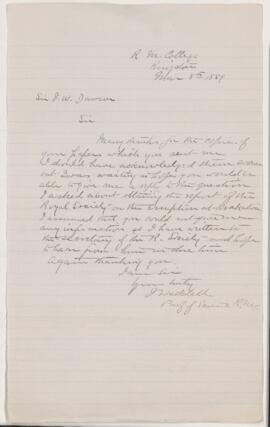 R. M. College
Kingston
Mar 8th 1889
Sir J. W. Dawson
Sir
Many thanks for the copies of
your papers which you sent me
I should have acknowledged them
but I was waiting in hope you would be
able to give me a reply to the question
I asked about obtaining the report of the
Royal Society on the eruption of Krakatoa
I assumed that you could not give me
any information so I have written to
the secretary of the R. Society and hope
to hear from him in due time
Again thanking you
I am Sir
Yours truly
J Waddell
Prof of Science R.M.C.